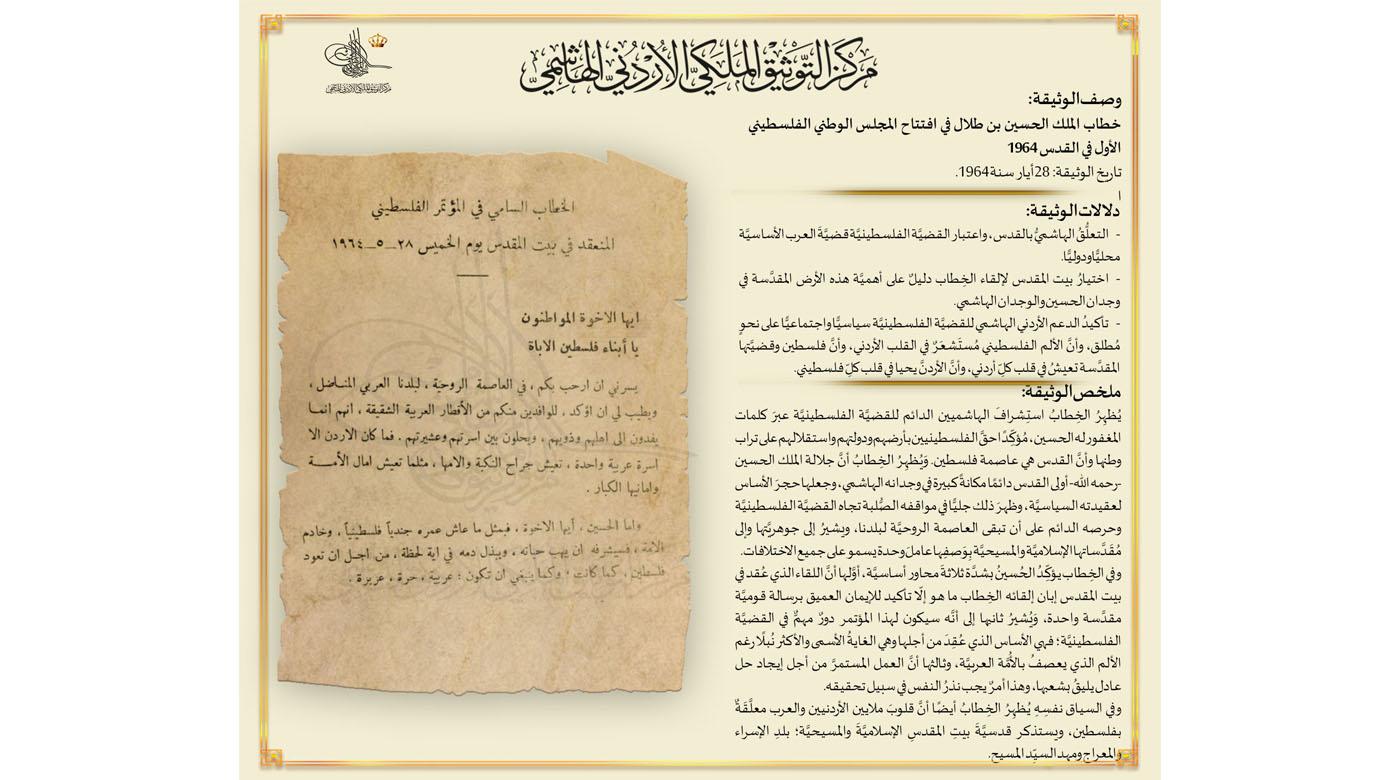 مركز التوثيق الملكي الأردني الهاشمي
وصف الوثيقة:
خطاب الملك الحسين بن طلال في افتتاح المجلس الوطني الفلسطيني
الأول في القدس 1964
تاريخ الوثيقة: 28 أيار سنة 1964.
ا
دلالات الوثيقة:
- التعلُّقُ الهاشميُّ بالقدس، واعتبار القضيَّة الفلسطينيَّة قضيَّةَ العرب الأساسيَّة
محليًّا ودوليًّا.
- اختيارُ بيت المقدس لإلقاء الخِطاب دليلٌ على أهميَّة هذه الأرض المقدَّسة في
وجدان الحسين والوجدان الهاشمي.
- تأكيدُ الدعم الأردني الهاشمي للقضيَّة الفلسطينيَّة سياسيًّا واجتماعيًّا على نحوٍ
مُطلق، وأنَّ الألم الفلسطيني مُستَشعَرٌ في القلب الأردني، وأنَّ فلسطين وقضيَّتها
المقدَّسة تعيشُ في قلب كلِّ أردني، وأنَّ الأردنَّ يحيا في قلب كلِّ فلسطيني.
ملخص الوثيقة:
يُظهِرُ الخِطابُ استِشرافَ الهاشميين الدائم للقضيَّة الفلسطينيَّة عبرَ كلمات
المغفور له الحسين، مُؤكِّدًا حقَّ الفلسطينيين بأرضهم ودولتهم واستقلالهم على تراب
وطنها وأنَّ القدس هي عاصمة فلسطين. وَيُظهِرُ الخِطابُ أنَّ جلالة الملك الحسين
-رحمه الله- أولى القدس دائمًا مكانةً كبيرة في وجدانه الهاشمي، وجعلها حجرَ الأساس
لعقيدته السياسيَّة، وظهرَ ذلك جليًّا في مواقفه الصُّلبة تجاه القضيَّة الفلسطينيَّة
وحرصه الدائم على أن تبقى العاصمة الروحيَّة لبلدنا، ويشيرُ إلى جوهريَّتها وإلى
مُقدَّساتها الإسلاميَّة والمسيحيَّة بِوَصفِها عاملَ وحدة يسمو على جميع الاختلافات.
وفي الخِطاب يؤكِّدُ الحُسينُ بشدَّة ثلاثةَ محاور أساسيَّة، أوَّلها أنَّ اللقاء الذي عُقد في
بيت المقدس إبان إلقائه الخِطاب ما هو إلّا تأكيد للإيمان العميق برسالة قوميَّة
مقدَّسة واحدة، وَيُشيرُ ثانيها إلى أنَّه سيكون لهذا المؤتمر دورٌ مهمٌّ في القضيَّة
الفلسطينيَّة؛ فهي الأساس الذي عُقِدَ من أجلها وهي الغايةُ الأسمى والأكثر نُبلًا رغم
الألم الذي يعصفُ بالأمَّة العربيَّة، وثالثها أنَّ العمل المستمرَّ من أجل إيجاد حل
عادل يليقُ بشعبها، وهذا أمرٌ يجب نذرُ النفس في سبيل تحقيقه.
وفي السياق نفسِهِ يُظهِرُ الخِطابُ أيضًا أنَّ قلوبَ ملايين الأردنيين والعرب معلَّقةٌ
بفلسطين، ويستذكر قدسيَّةَ بيتِ المقدسِ الإسلاميَّةَ والمسيحيَّة؛ بلدِ الإسراء
والمعراج ومهد السيّد المسيح.
الخطاب السامي في المؤتمر الفلسطيني
المنعقد في بيت المقدس يوم الخميس ٢٨_٥_١٩٦٤
ايها الاخوة المواطنون
يا أبناء فلسطين الاباة
يسرني ان ارحب بكم ، في العاصمة الروحية ، لبلدنا العربي المناضل ،
ويطيب لي ان اؤكد ، للوافدين منكم من الأقطار العربية الشقيقة ، انهم انما
يفدون الى اهلهم وذويهم ، ويحلون بين اسرتهم وعشيرتهم . فما كان الاردن الا
اسرة عربية واحدة ، تعيش جراح النكبة والامها ، مثلما تعيش امال الأمة
وامانيها الكبار .
واما الحسين ، أيها الاخوة ، فبمثل ما عاش عمره جندياً فلسطينياً ، وخادم
الامة ، فسيشرفه ان يهب حياته ، ويبذل دمه في اية لحظة ، من اجل ان تعود
فلسطين ، كما كانت ؛ وكما ينبغي ان تكون : عربية ، حرة ، عزيزة .